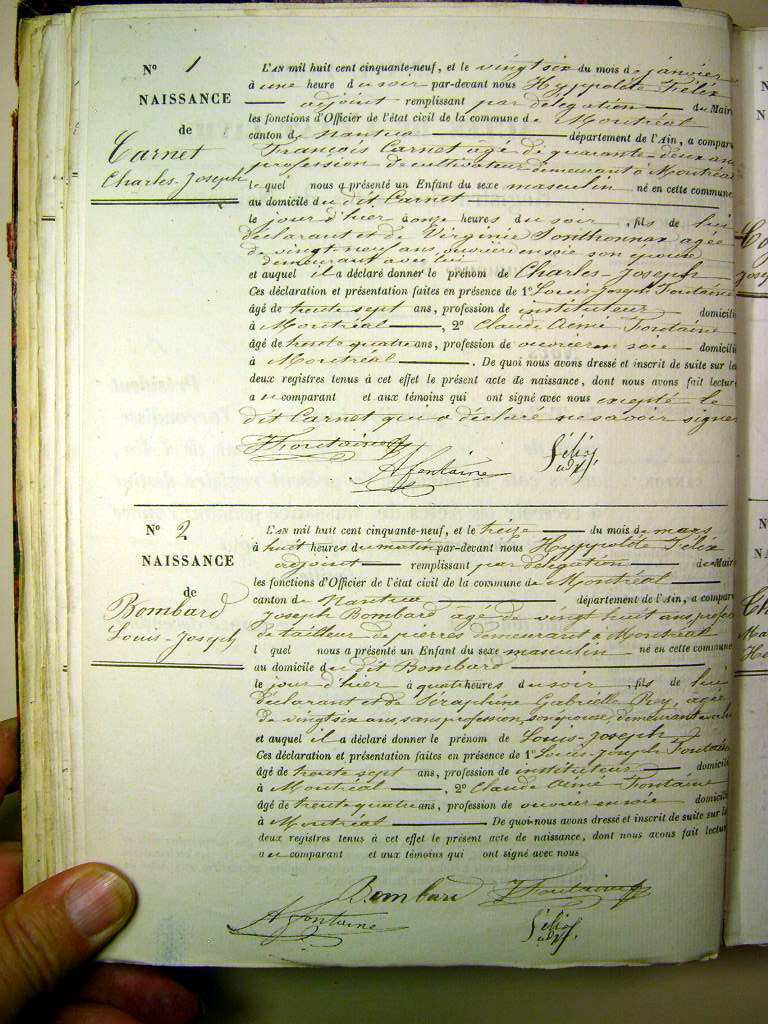 N° 1
NAISSANCE
de
Carnet
Charles-Joseph
L'AN mil huit cent cinquante-neuf, et le vingt six du mois de janvier
à une heure du soir par-devant nous Hyppolite Félix
adjoint remplissant par délégation du Maire
les fonctions d'Officier de l'état civil de la commune de Montréal
canton de Nantua département de l'Ain, a comparu
François Carnet agé de quarante-deux ans
profession de cultivateur demeurant à Montréal
le quel nous a présenté un Enfant du sexe masculin né en cette commune
au domicile du dit Carnet
le jour d'hier à onze heures du soir, fils de lui
déclarant et de Virginie Sonthonnax agée
de vingt neuf ans, ouvrière en soie son épouse
demeurant avec lui
et auquel il a déclaré donner le prénom de Charles-Joseph
Ces déclaration et présentation faites en présence de 1° Louis-Joseph Fontaine
âgé de trente sept ans, profession de instituteur domicilié
à Montréal, 2° Claude Aimé Fontaine
âgé de trente quatre ans, profession de ouvrier en soie domicilié
à Montréal. De quoi nous avons dressé et inscrit de suite sur les
deux registres tenus à cet effet le présent acte de naissance, dont nous avons fait lecture
au comparant et aux témoins qui ont signé avec nous excepté le
dit Carnet qui a déclaré ne savoir signer
JFontaine
AFontaine
Félix
adjt.
N° 2
NAISSANCE
de
Bombard
Louis-Joseph
L'AN mil huit cent cinquante-neuf, et le treize du mois de mars
à huit heures du matin par-devant nous Hyppolite Félix
adjoint remplissant par délégation de Maire
les fonctions d'Officier de l'état civil de la commune de Montréal
canton de Nantua département de l'Ain, a comparu
Joseph Bombard âgé de vingt huit ans, profession
de tailleur de pierres demeurant à Montréal
l quel nous a présenté un Enfant du sexe masculin né en cette commune
au domicile du dit Bombard
le jour d'hier à quatre heures du soir, fils de lui
déclarant et de Séraphine Gabrielle Roy, agée
de vingt six ans, sans profession, son épouse, demeurant avec lui
et auquel il a déclaré donner le prénom de Louis-Joseph
Ces déclaration et présentation faites en présence de 1° Louis-Joseph Fontaine
âgé de trente sept ans, profession de instituteur domicilié
à Montréal, 2° Claude Aimé Fontaine
âgé de trente quatre ans, profession de ouvrier en soie domicilié
à Montréal. De quoi nous avons dressé et inscrit de suite sur les
deux registres tenus à cet effet le présent acte de naissance, dont nous avons fait lecture
au comparant et aux témoins qui ont signé avec nous
Bombard JFontaine
AFontaine
Félix
adjt.